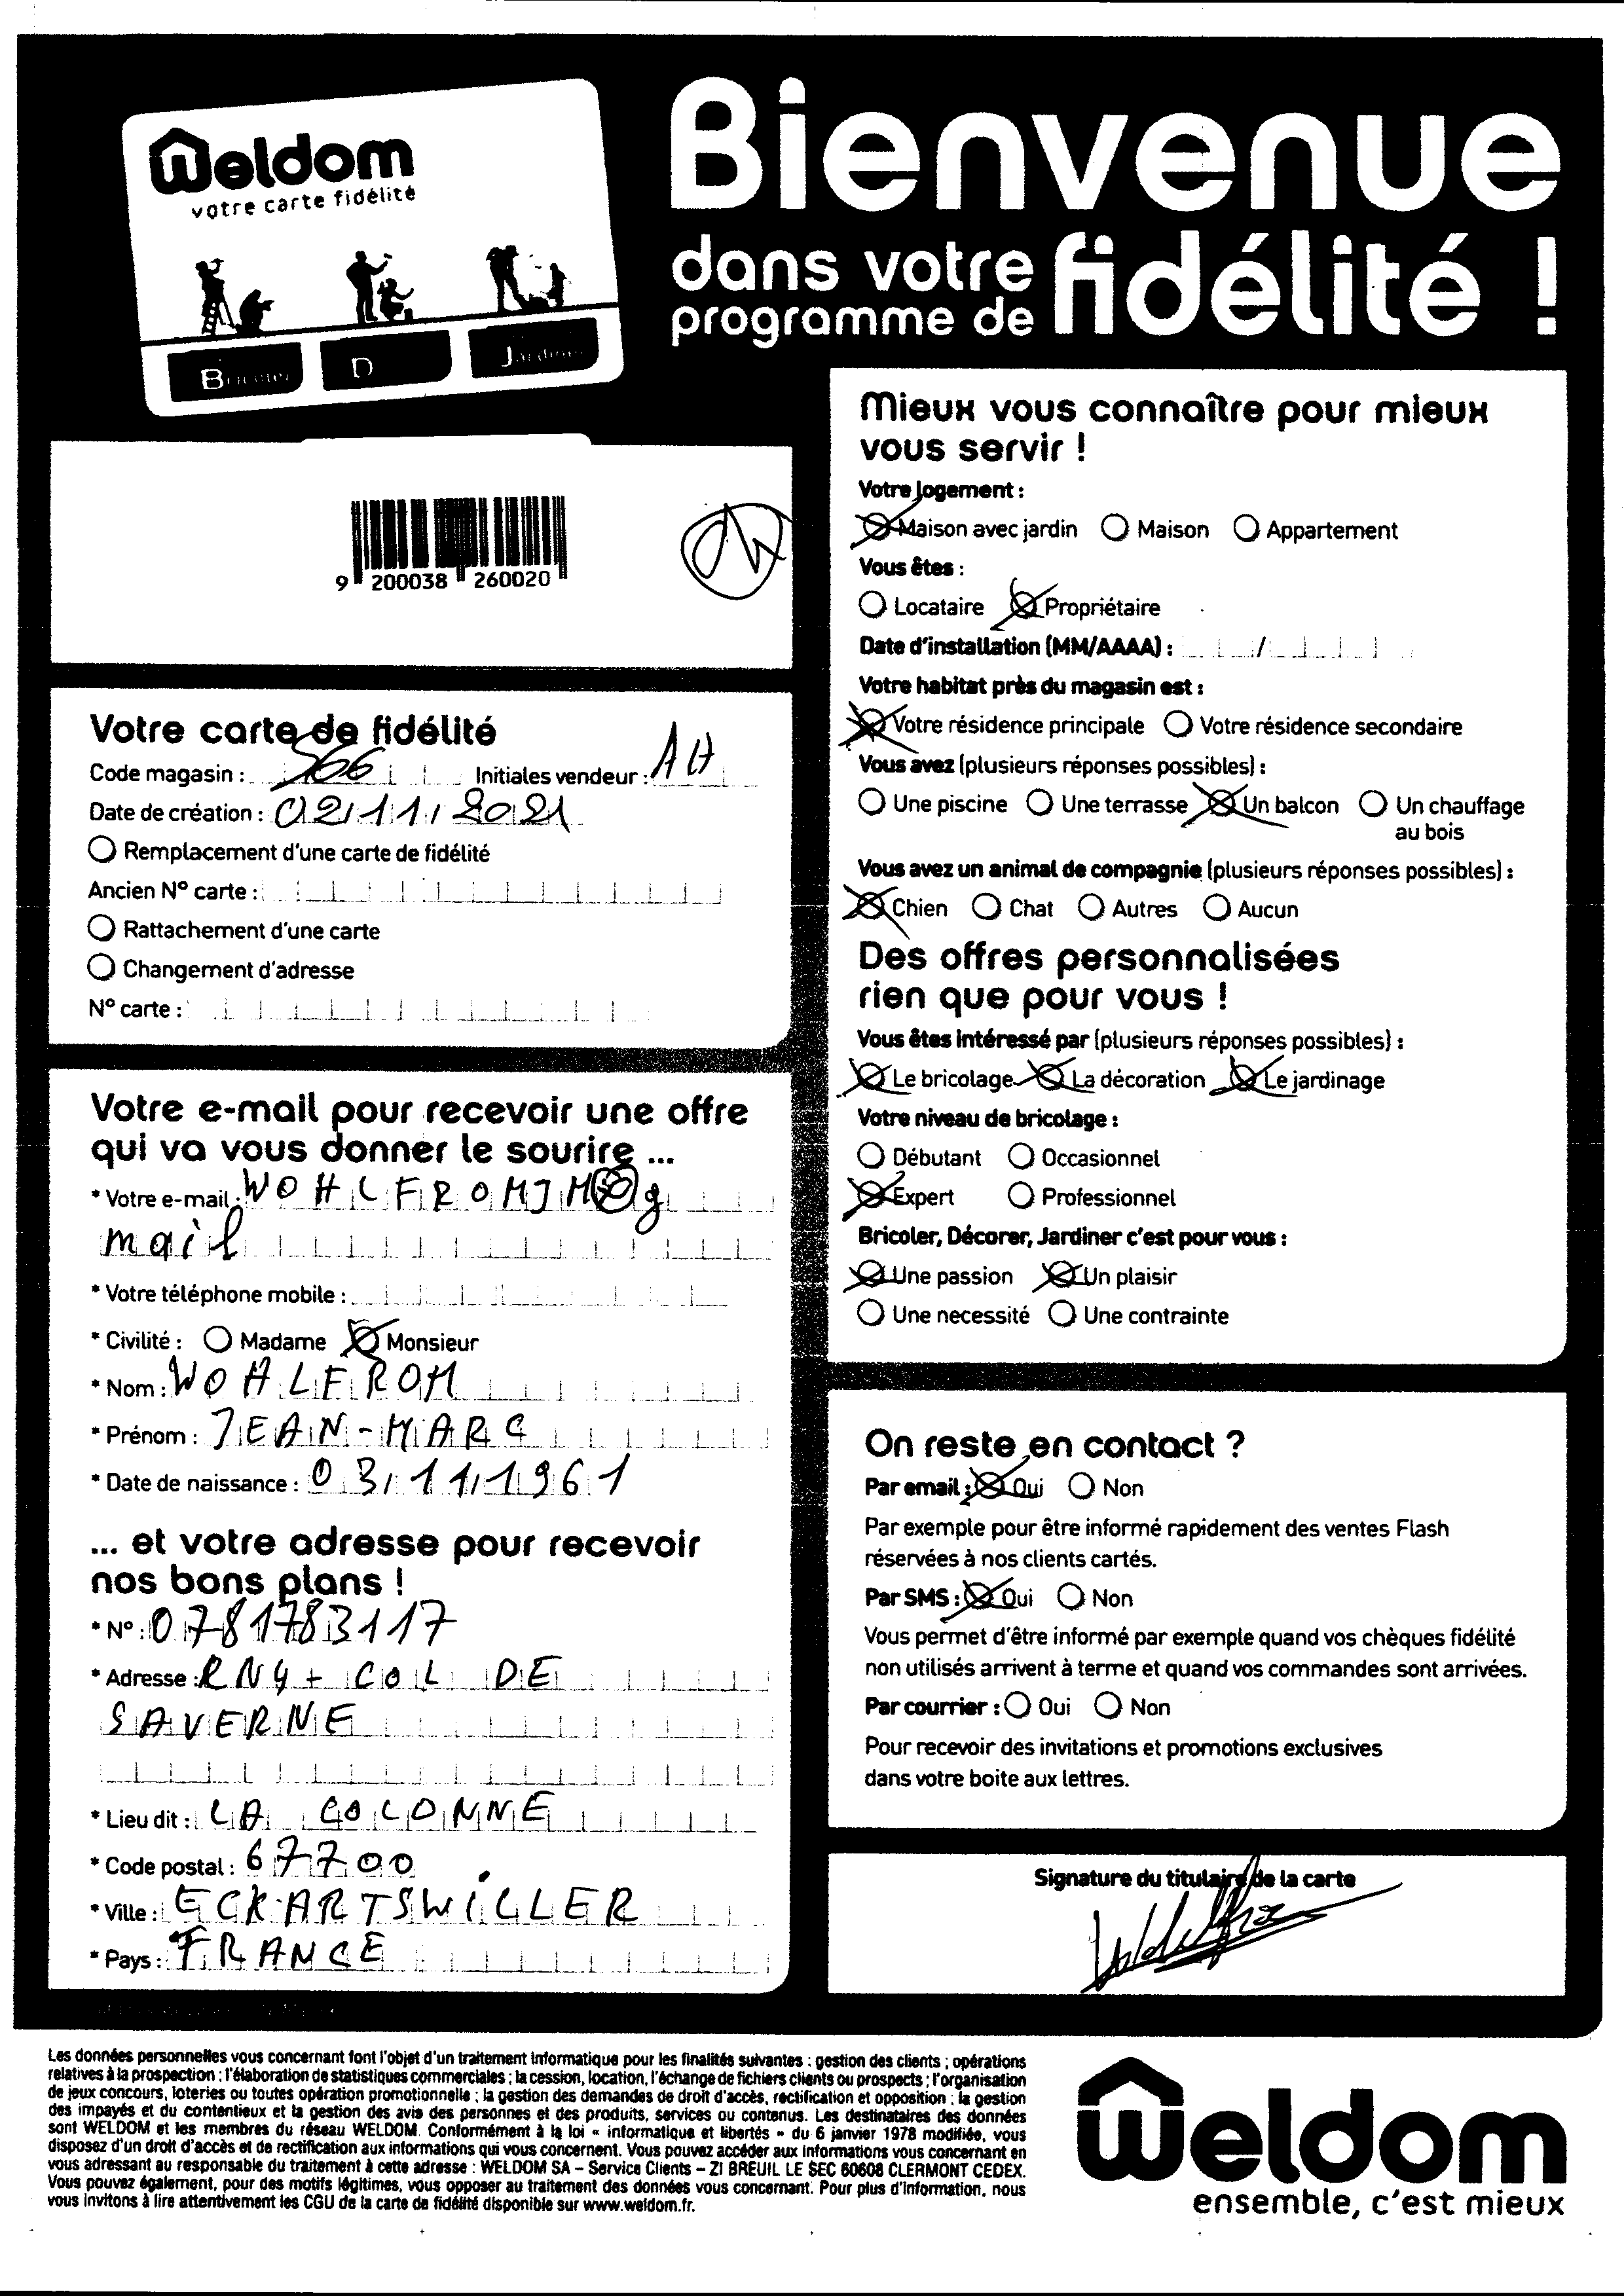 Weldom
votre carte fidélité
Bricoler D Jardiner
Bienvenue
dans votre
programme de fidélité !
9 200038 260020
Votre carte de fidélité
Code magasin : 566 Initiales vendeur : AH
Date de création : 02/11/2021
Remplacement d'une carte de fidélité
Ancien N° carte :
Rattachement d'une carte
Changement d'adresse
N° carte :
Votre e-mail pour recevoir une offre
qui va vous donner le sourire ...
* Votre e-mail : WOHLFROMJM@g
mail
* Votre téléphone mobile :
* Civilité : Madame Monsieur
* Nom : WOHLFROM
* Prénom : JEAN-MARC
* Date de naissance : 03/11/1961
... et votre adresse pour recevoir
nos bons plans !
* N° : 0781783117
* Adresse : RN4+ COL DE
SAVERNE
* Lieu dit : LA COLONNE
* Code postal : 67700
* Ville : ECKARTSWILLER
* Pays : FRANCE
Mieux vous connaître pour mieux
vous servir !
Votre logement :
Maison avec jardin Maison Appartement
Vous êtes :
Locataire Propriétaire
Date d'installation (MM/AAAA) : /
Votre habitat près du magasin est :
Votre résidence principale Votre résidence secondaire
Vous avez (plusieurs réponses possibles) :
Une piscine Une terrasse Un balcon Un chauffage
au bois
Vous avez un animal de compagnie (plusieurs réponses possibles) :
Chien Chat Autres Aucun
Des offres personnalisées
rien que pour vous !
Vous êtes intéressé par (plusieurs réponses possibles) :
Le bricolage La décoration Le jardinage
Votre niveau de bricolage :
Débutant Occasionnel
Expert Professionnel
Bricoler, Décorer, Jardiner c'est pour vous :
Une passion Un plaisir
Une necessité Une contrainte
On reste en contact ?
Par email : Oui Non
Par exemple pour être informé rapidement des ventes Flash
réservées à nos clients cartés.
Par SMS : Oui Non
Vous permet d'être informé par exemple quand vos chèques fidélité
non utilisés arrivent à terme et quand vos commandes sont arrivées.
Par courrier : Oui Non
Pour recevoir des invitations et promotions exclusives
dans votre boite aux lettres.
Signature du titulaire de la carte
Les données personnelles vous concernant font l'objet d'un traitement informatique pour les finalités suivantes : gestion des clients ; opérations
relatives à la prospection ; l'élaboration de statistiques commerciales ; la cession, location, l'échange de fichiers clients ou prospects ; l'organisation
de jeux concours, loteries ou toutes opération promotionnelle ; la gestion des demandes de droit d'accès, rectification et opposition ; la gestion
des impayés et du contentieux et la gestion des avis des personnes et des produits, services ou contenus. Les destinataires des données
sont WELDOM et les membres du réseau WELDOM. Conformément à la loi « informatique et libertés » du 6 janvier 1978 modifiée, vous
disposez d'un droit d'accès et de rectification aux informations qui vous concernent. Vous pouvez accéder aux informations vous concernant en
vous adressant au responsable du traitement à cette adresse : WELDOM SA – Service Clients – ZI BREUIL LE SEC 60608 CLERMONT CEDEX.
Vous pouvez également, pour des motifs légitimes, vous opposer au traitement des données vous concernant. Pour plus d'information, nous
vous invitons à lire attentivement les CGU de la carte de fidélité disponible sur www.weldom.fr.
Weldom
ensemble, c'est mieux